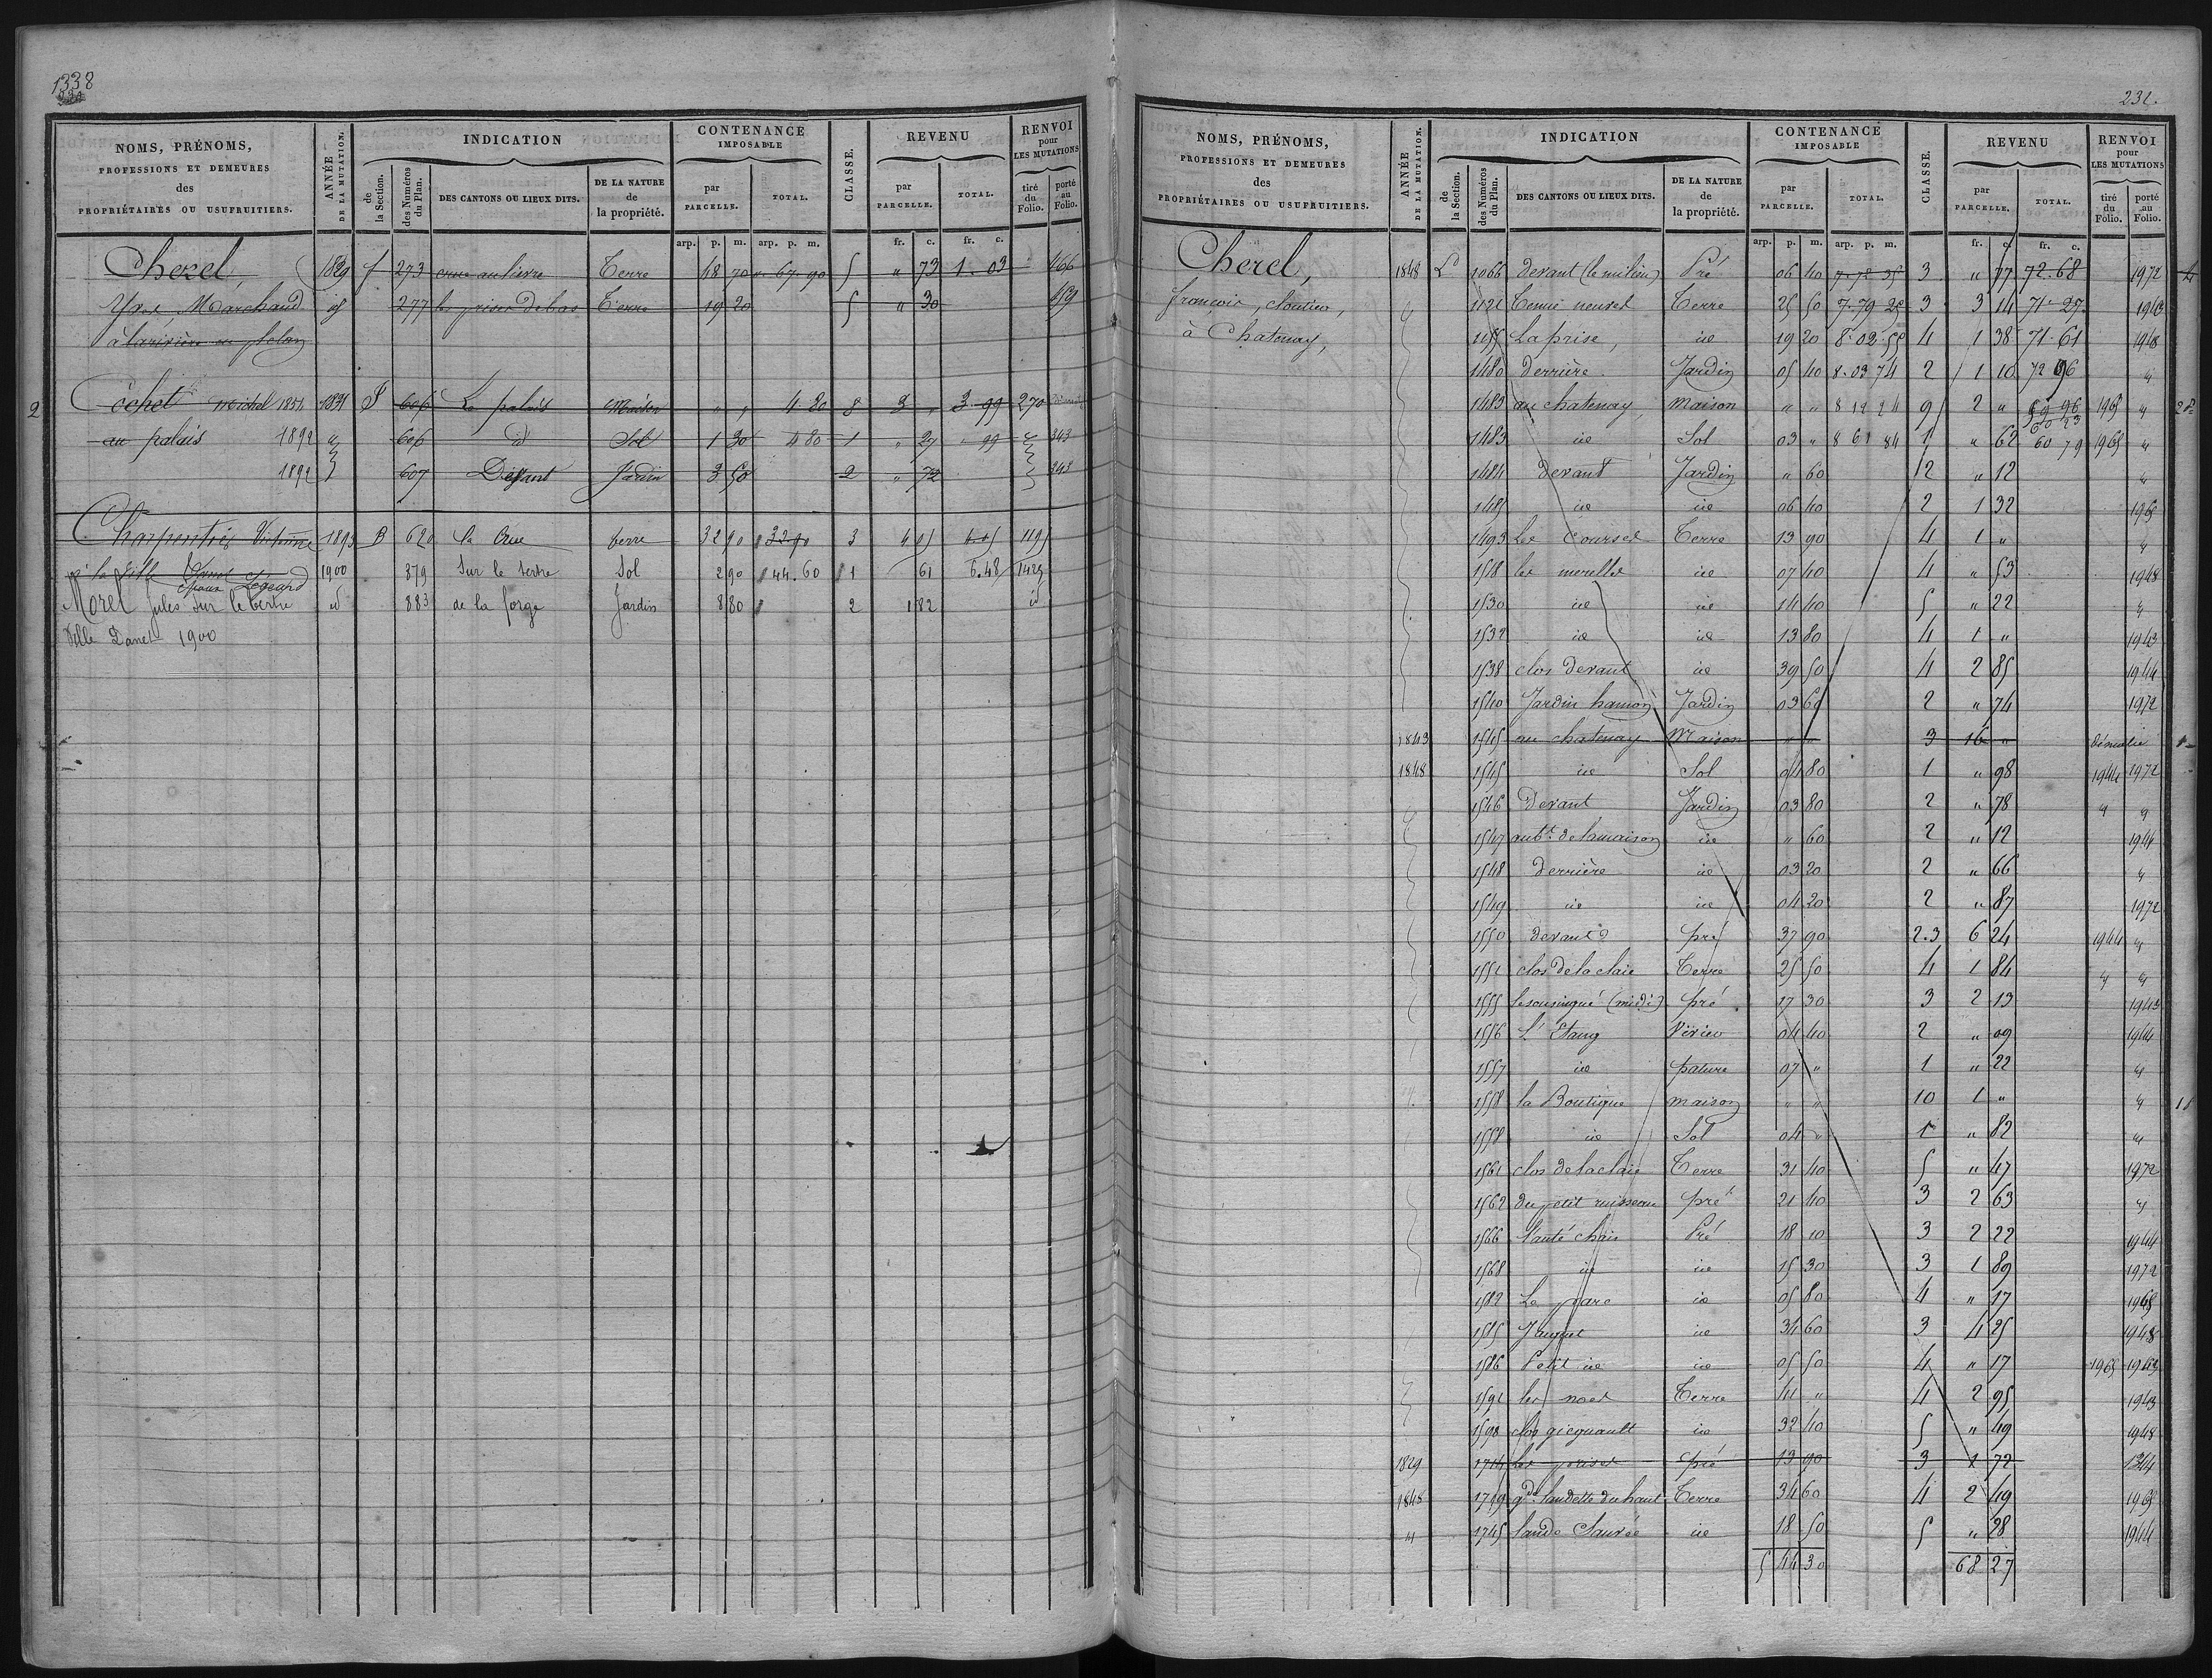 1338
NOMS, PRÉNOMS,
PROFESSIONS ET DEMEURES
des
PROPRIÉTAIRES OU USUFRUITIERS.
ANNÉE
DE LA MUTATION.
INDICATION
de
la Section.
des Numéros
du Plan.
DES CANTONS OU LIEUX DITS.
DE LA NATURE
de
la propriété.
CONTENANCE
IMPOSABLE
par
PARCELLE.
TOTAL.
CLASSE.
REVENU
par
PARCELLE.
TOTAL.
RENVOI
pour
LES MUTATIONS
tiré
du
Folio.
porté
au
Folio.
arp. p. m. arp. p. m. fr. c. fr. c.
Cherel, 1829 f 273 crue au lievre Terre 48 70 " 67. 90 5 " 73 1. 03 166
Yves, Marchand 277 les prises de bas Terre 19 20 5 " 30 159
2 Cochet michel 1854 1831 606 Le palais Maison " " 4 80 8 3 " 3 99 270
au palais 1892 " 606 id Sol 1 30 4 80 1 " 27 " 99 " 343
1892 607 Devant Jardin 3 50 2 " 72 343
Charpentier 1893 B 620 la Crue terre 32 90 32.90 3 4 05 4.05 1195
Danet 1900 879 Sur le tertre Sol 2 90 44. 60 1 61 6.48 1429
Morel Jules sur le tertre id 883 de la forge Jardin 8 80 2 1 82 id
Ville Danet 1900
231.
NOMS, PRÉNOMS,
PROFESSIONS ET DEMEURES
des
PROPRIÉTAIRES OU USUFRUITIERS.
ANNÉE
DE LA MUTATION.
INDICATION
de
la Section.
des Numéros
du Plan.
DES CANTONS OU LIEUX DITS.
DE LA NATURE
de
la propriété.
CONTENANCE
IMPOSABLE
par
PARCELLE.
TOTAL.
CLASSE.
REVENU
par
PARCELLE.
TOTAL.
RENVOI
pour
LES MUTATIONS
tiré
du
Folio.
porté
au
Folio.
arp. p. m. arp. p. m. fr. c. fr. c.
Cherel, 1848 1066 devant (le milieu) Pré 06 40 7.72 35 3 " 77 72.68 1972
françois, cloutier, 1121 Terre 25 50 7.79 25 3 3 14 71. 27 1943
à Chatenay, 1155 La prise, id 19 20 8.02.55 4 1 38 71.61 1948
1480 Derrière Jardin 05 40 8.03 74 2 1 10 72 96 "
1483 au chatenay, maison " " 8 12 24 9 2 " 59 96 1965 "
1483 id Sol 03 " 8 61 84 1 " 62 60 79 1965 "
1484 Devant Jardin " 60 2 " 12 "
1485 id id 06 40 2 1 32 1965
1493 Les courses Terre 13 90 4 1 " "
1518 les id 07 40 4 " 53 1948
1530 id id 14 40 5 " 22 "
1532 id id 13 80 4 1 " 1943
1538 clos devant id 39 50 4 2 85 1944
1540 Jardin hamon Jardin 03 60 2 " 74 1972
1843 1545 au chatenay Maison " " 3 16 " démolie
1848 1545 id Sol 04 80 1 " 98 1944 1972
1546 Devant Jardin 03 80 2 " 78 " "
1547 aub.t de la maison id " 60 2 " 12 1944
1548 Derrière id 03 20 2 " 66 "
1549 id id 04 20 2 " 87 1972
1550 devant pré 37 90 2.3 6 24 1944 "
1551 clos de la claie Terre 25 50 4 1 84 " "
1555 (midi) pré 17 30 3 2 13 1943
1556 L'Etang 04 40 2 " 09 1944
1557 id pature 07 " 1 " 22 "
1558 la Boutique maison " " 10 1 " "
1558 id Sol 04 " 1 " 82 "
1561 clos de la claie Terre 31 40 5 " 47 1972
1562 du petit ruisseau pré 21 40 3 2 63 "
1566 Pré 18 10 3 2 22 1944
1568 id id 15 30 3 1 89 1972
1582 Le parc id 05 80 4 " 17 1965
1585 id 34 60 3 4 25 1948
1586 Petit id id 05 50 4 " 17 1965 1943
1591 les noes Terre 41 " 4 2 95 1943
1598 clos gicquault id 32 40 5 " 49 1948
1829 1714 les prises pré 13 90 3 1 72 1344
1848 1719 g.de landelle du haut Terre 34 60 4 2 49 1965
" 1745 lande id 18 50 5 " 28 1944
5 44 30 68 27